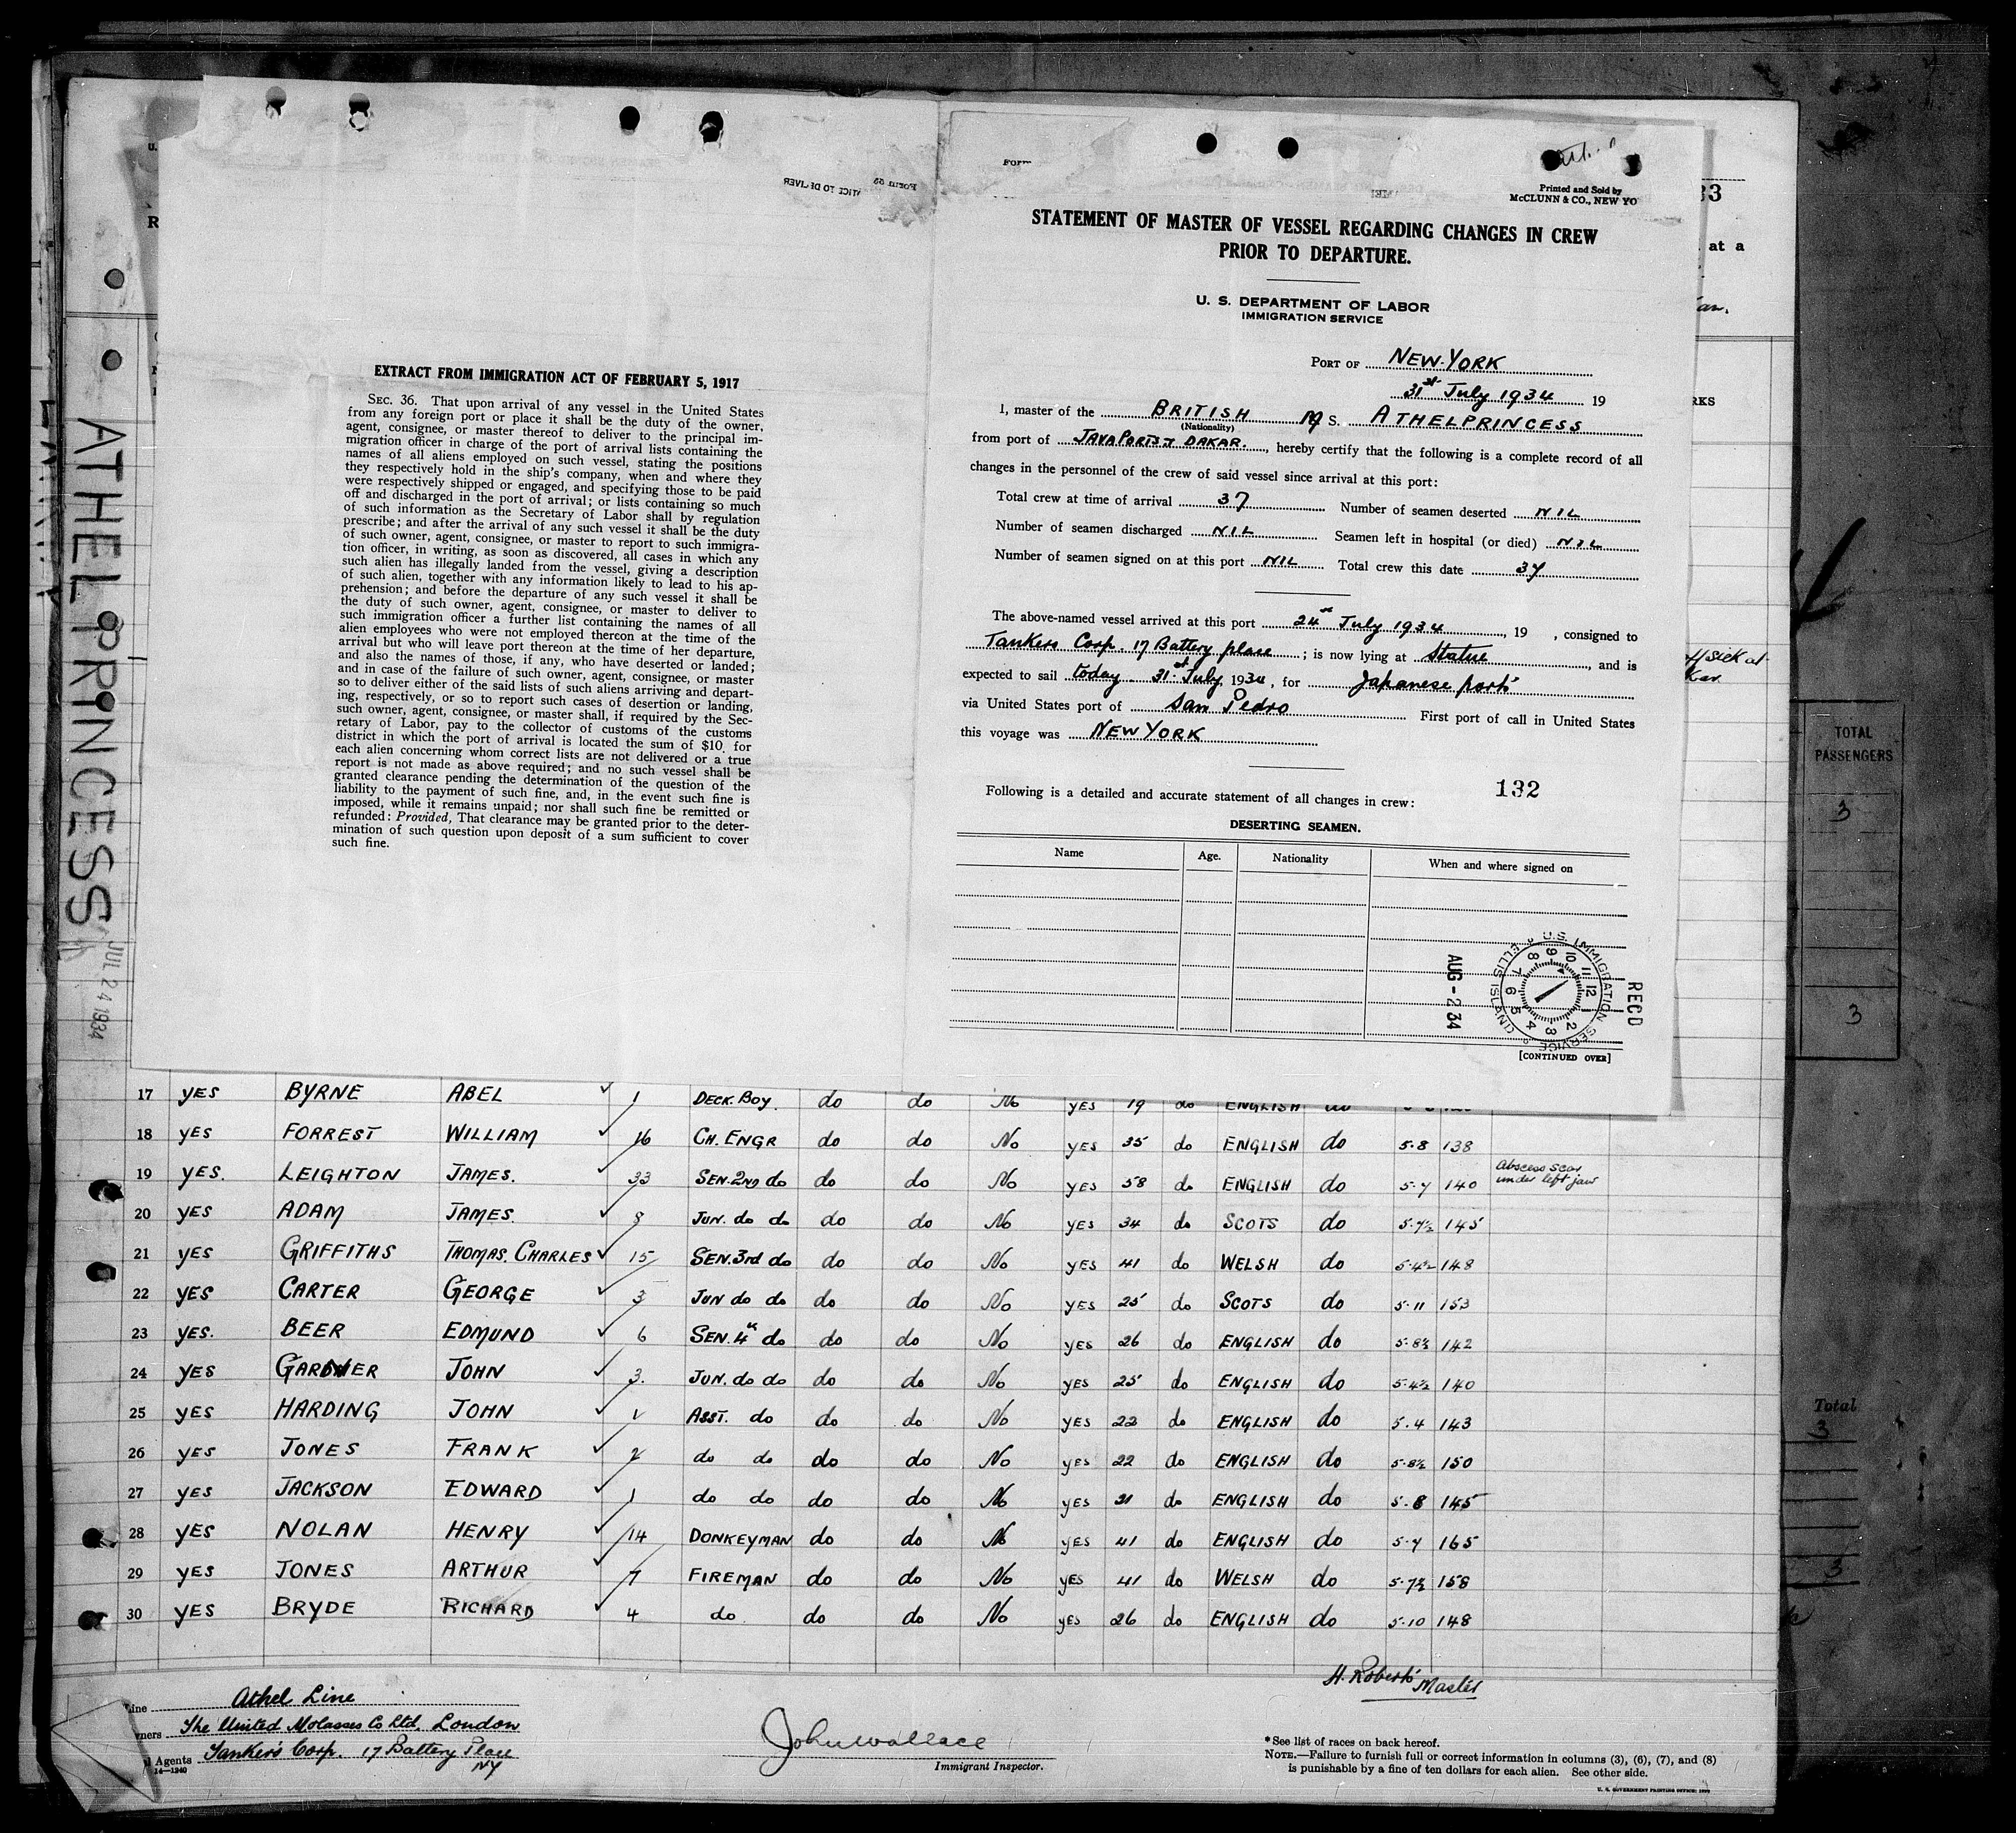 ATHELPRINCESS
JUL 24 1934
EXTRACT FROM IMMIGRATION ACT OF FEBRUARY 5, 1917
SEC. 36. That upon arrival of any vessel in the United States
from any foreign port or place it shall be the duty of the owner,
agent, consignee, or master thereof to deliver to the principal im-
migration officer in charge of the port of arrival lists containing the
names of all aliens employed on such vessel, stating the positions
they respectively hold in the ship's company, when and where they
were respectively shipped or engaged, and specifying those to be paid
off and discharged in the port of arrival; or lists containing so much
of such information as the Secretary of Labor shall by regulation
prescribe; and after the arrival of any such vessel it shall be the duty
of such owner, agent, consignee, or master to report to such immigra-
tion officer, in writing, as soon as discovered, all cases in which any
such alien has illegally landed from the vessel, giving a description
of such alien, together with any information likely to lead to his ap-
prehension; and before the departure of any such vessel it shall be
the duty of such owner, agent, consignee, or master to deliver to
such immigration officer a further list containing the names of all
alien employees who were not employed thereon at the time of the
arrival but who will leave port thereon at the time of her departure,
and also the names of those, if any, who have deserted or landed;
and in case of the failure of such owner, agent, consignee, or master
so to deliver either of the said lists of such aliens arriving and depart-
ing, respectively, or so to report such cases of desertion or landing,
such owner, agent, consignee, or master shall, if required by the Sec-
retary of Labor, pay to the collector of customs of the customs
district in which the port of arrival is located the sum of $10. for
each alien concerning whom correct lists are not delivered or a true
report is not made as above required; and no such vessel shall be
granted clearance pending the determination of the question of the
liability to the payment of such fine, and, in the event such fine is
imposed, while it remains unpaid; nor shall such fine be remitted or
refunded: Provided, That clearance may be granted prior to the deter-
mination of such question upon deposit of a sum sufficient to cover
such fine.
Printed and Sold by
McCLUNN & CO., NEW YO
STATEMENT OF MASTER OF VESSEL REGARDING CHANGES IN CREW
PRIOR TO DEPARTURE.
U. S. DEPARTMENT OF LABOR
IMMIGRATION SERVICE
PORT OF NEW-YORK
31st July 1934 19
I, master of the BRITISH M S. ATHELPRINCESS
(Nationality)
from port of JAVA PORTS & DAKAR., hereby certify that the following is a complete record of all
changes in the personnel of the crew of said vessel since arrival at this port:
Total crew at time of arrival 37 Number of seamen deserted NIL
Number of seamen discharged NIL Seamen left in hospital (or died) NIL
Number of seamen signed on at this port NIL Total crew this date 37
The above-named vessel arrived at this port 24th July 1934, 19 , consigned to
Tankers Corp. 17 Battery place ; is now lying at Statue, and is
expected to sail today 31st July, 1934, for Japanese ports
via United States port of San Pedro First port of call in United States
this voyage was NEW YORK
132
Following is a detailed and accurate statement of all changes in crew:
DESERTING SEAMEN.
Name Age. Nationality When and where signed on
RECD
U.S. IMMIGRATION SERVICE ELLIS ISLAND
AUG - 2 34
[CONTINUED OVER]
33
at a
RKS
TOTAL
PASSENGERS
3
3
Total
3
3
17 YES BYRNE ABEL 1 DECK. BOY. do do No YES 19 do ENGLISH do
18 YES FORREST WILLIAM 16 CH. ENGR do do No YES 35 do ENGLISH do 5-8 138
19 YES. LEIGHTON JAMES. 33 SEN. 2ND do do do No YES 58 do ENGLISH do 5-7 140 Abscess scar under left jaw
20 YES ADAM JAMES. 8 JUN. do do do do No YES 34 do SCOTS do 5-7½ 145
21 YES GRIFFITHS THOMAS. CHARLES 15 SEN. 3rd do do do No YES 41 do WELSH do 5-4½ 148
22 YES CARTER GEORGE 3 JUN do do do do No YES 25 do SCOTS do 5-11 153
23 YES. BEER EDMUND 6 SEN. 4th do do do No YES 26 do ENGLISH do 5-8½ 142
24 YES GARDNER JOHN 3. JUN. do do do do No YES 25 do ENGLISH do 5-4½ 140
25 YES HARDING JOHN 1 ASST. do do do No YES 22 do ENGLISH do 5.4 143
26 YES JONES FRANK 2 do do do do No YES 22 do ENGLISH do 5-8½ 150
27 YES JACKSON EDWARD 1 do do do do No YES 21 do ENGLISH do 5-8 145
28 YES NOLAN HENRY 14 DONKEYMAN do do No YES 41 do ENGLISH do 5-7 165
29 YES JONES ARTHUR 7 FIREMAN do do No YES 41 do WELSH do 5-7½ 158
30 YES BRYDE RICHARD 4 do do do No YES 26 do ENGLISH do 5-10 148
H. Roberts Master
Line Athel Line
The United Molasses Co Ltd. London
Agents Tankers Corp. 17 Battery Place
NY
14-1240
John Wallace
Immigrant Inspector.
*See list of races on back hereof.
NOTE.—Failure to furnish full or correct information in columns (3), (6), (7), and (8)
is punishable by a fine of ten dollars for each alien. See other side.